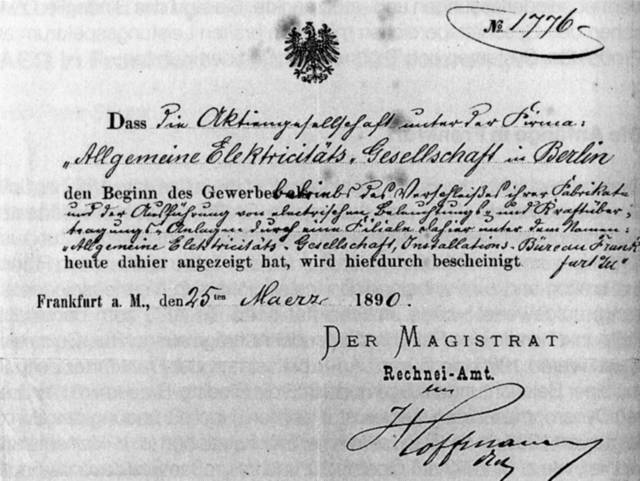 № 1776
Dass die Aktiengesellschaft unter der Firma:
„Allgemeine Elektricitäts-Gesellschaft in Berlin
den Beginn des Gewerbebetriebs des Verschleißes ihrer Fabrikate
und der Ausführung von electrischen Beleuchtungs- und Kraftüber-
tragungs-Anlagen durch eine Filiale dahier unter dem Namen:
„Allgemeine Elektricitäts-Gesellschaft, Installations-Büreau Frank
heute dahier angezeigt hat, wird hierdurch bescheinigt furt a/M"
Frankfurt a. M., den 25ten Maerz 1890.
DER MAGISTRAT
Rechnei-Amt.
Hoffmann